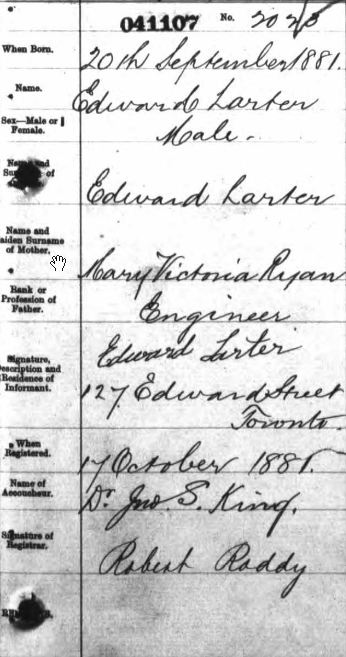 041107 No. 2023
When Born. 20th September 1881.
Name. Edward Larter
Sex—Male or
Female. Male.
Name and
Surname of Edward Larter
Name and
aiden Surname
of Mother. Mary Victoria Ryan
Rank or
Profession of
Father. Engineer
Signature, Edward Larter
escription and
Residence of 127 Edward Street
Informant. Toronto.
When
Registered. 17 October 1881.
Name of
Accoucheur. Dr. Jno. S. King.
Signature of
Registrar. Robert Roddy